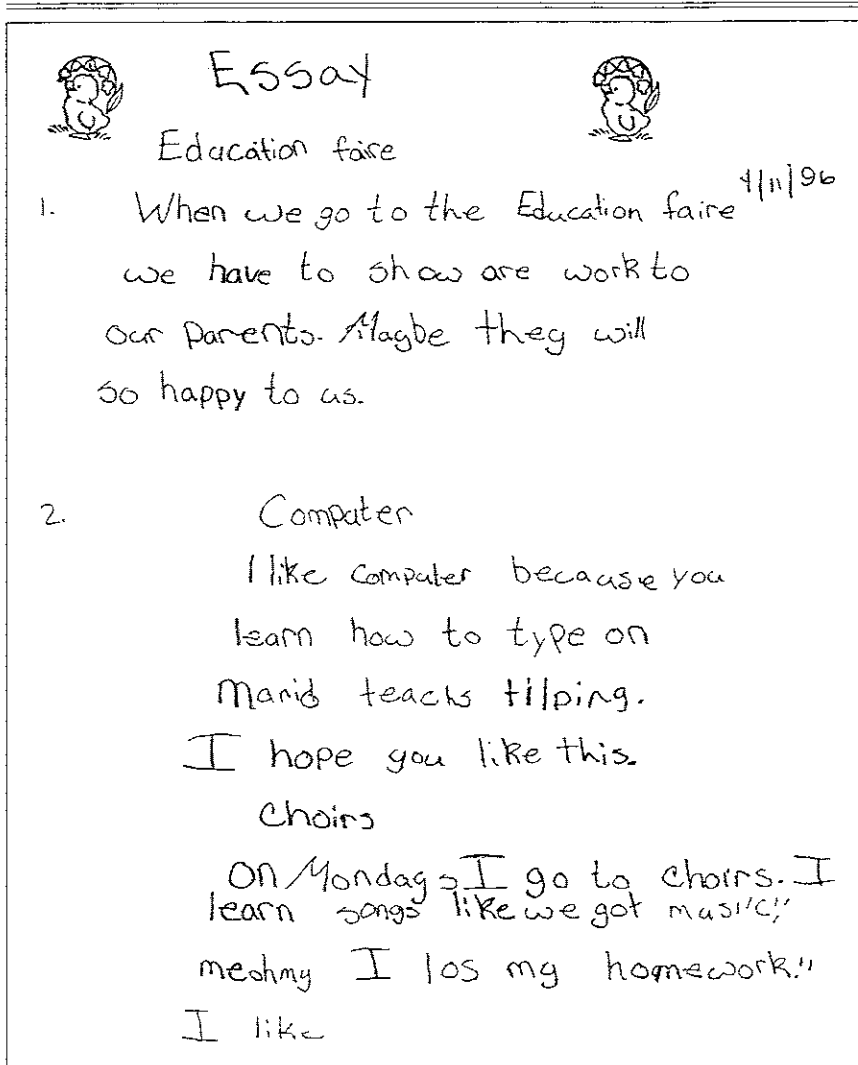 Essay
Education faire
4/11/96
1. When we go to the Education faire
we have to show are work to
our parents. Maybe they will
so happy to us.
2. Computer
I like computer because you
learn how to type on
Marid teachs tilping.
I hope you like this.
Choirs
On Mondays I go to choirs. I
learn songs like we got music,"
meohmy I los my homework."
I like